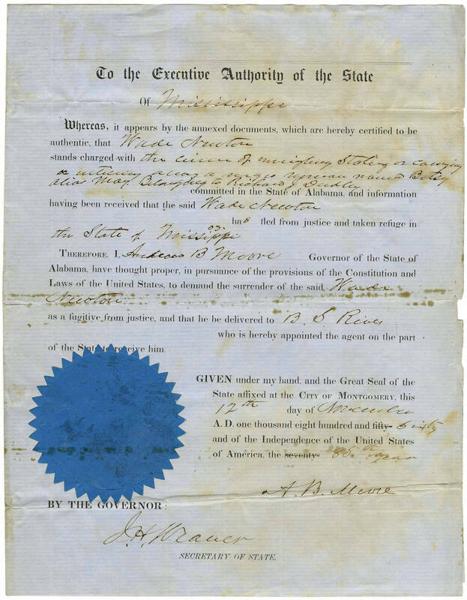 To the Executive Authority of the State
Of Mississippi
Whereas, it appears by the annexed documents, which are hereby certified to be
authentic, that Wade Newton
stands charged with the crime of inveigling Stealing or carrying
or enticing away a negro woman named Betsy
alias May Belonging to Richard J Dudley
committed in the State of Alabama, and information
having been received that the said Wade Newton
has fled from justice and taken refuge in
the State of Mississippi
Therefore I, Andrew B Moore Governor of the State of
Alabama, have thought proper, in pursuance of the provisions of the Constitution and
Laws of the United States, to demand the surrender of the said Wade
Newton
as a fugitive from justice, and that he be delivered to B S Rives
who is hereby appointed the agent on the part
of the State to receive him.
GIVEN under my hand, and the Great Seal of the
State affixed at the City of Montgomery, this
12th day of November
A.D. one thousand eight hundred and fifty sixty
and of the Independence of the United States
of America, the seventy 85th year
A. B. Moore
BY THE GOVERNOR:
SECRETARY OF STATE.